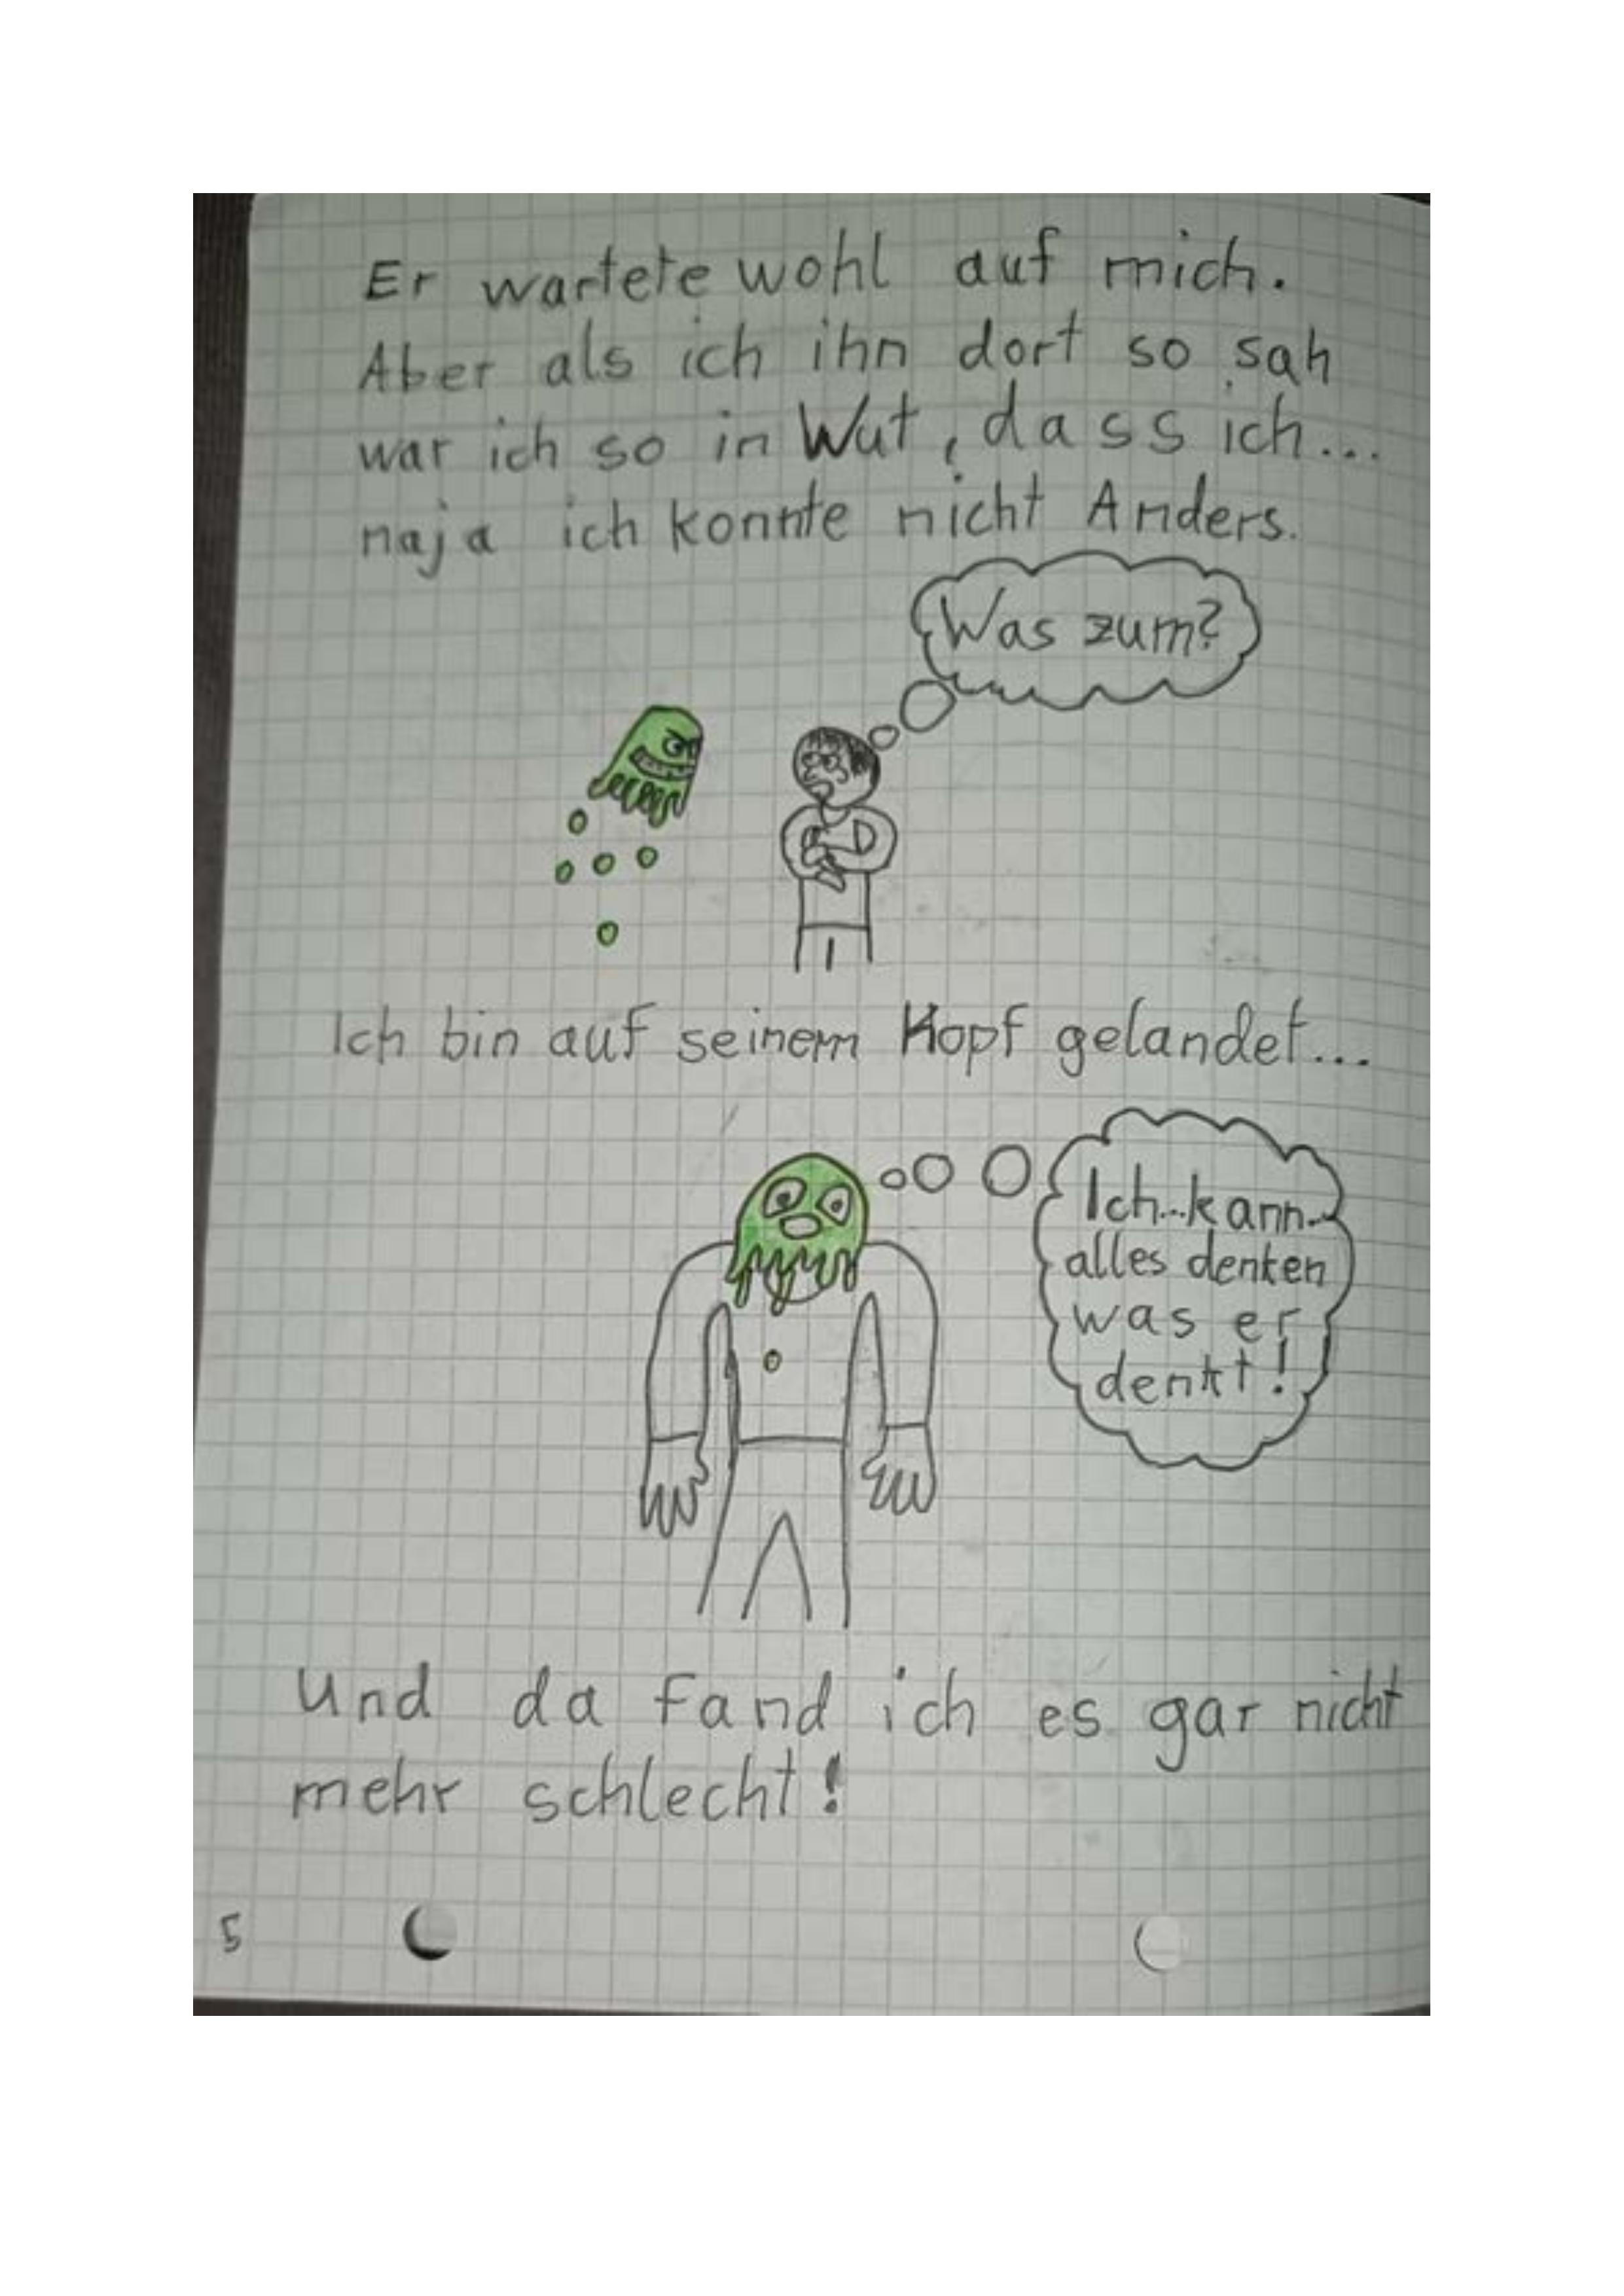 Er wartete wohl auf mich.
Aber als ich ihn dort so sah
war ich so in Wut, dass ich...
naja ich konnte nicht Anders.
Was zum?
Ich bin auf seinem Kopf gelandet...
Ich...kann..
alles denken
was er
denkt!
Und da fand ich es gar nicht
mehr schlecht!
5